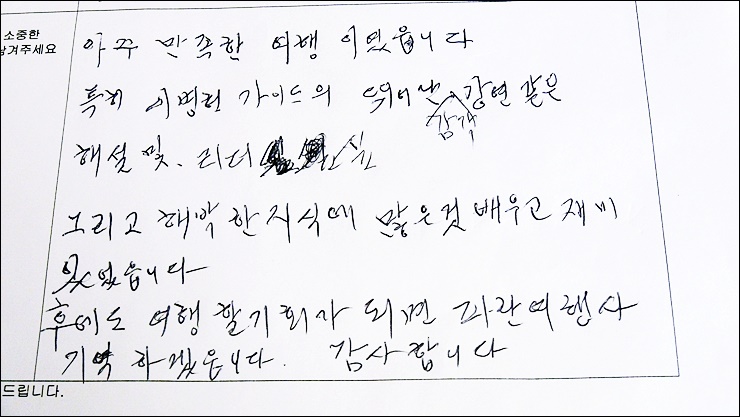 소중한
남겨주세요
아주 만족한 여행 이었읍니다
특히 이병헌 가이드의 뛰어난 감각 강연 같은
해설 및. 리더 십
그리고 해박한 지식에 많은것 배우고 재미
있었읍니다
후에도 여행 할기회가 되면 파란여행사
기억 하겠읍니다. 감사합니다
드립니다.